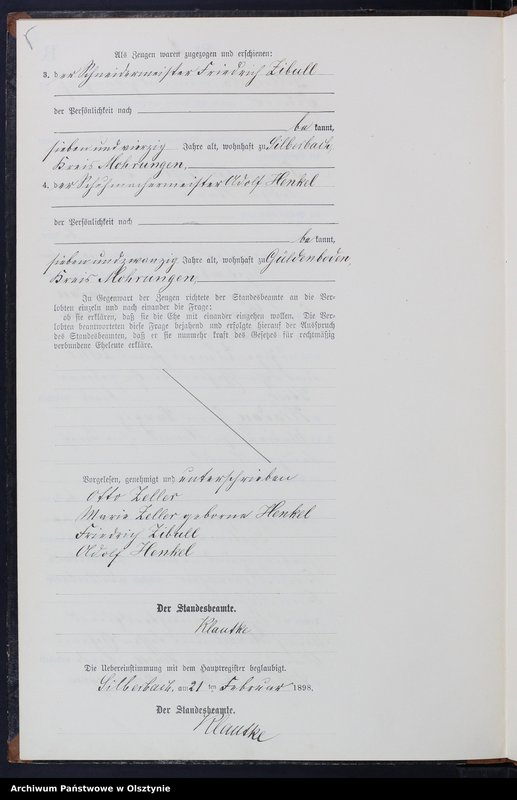 Als Zeugen waren zugezogen und erschienen:
3. der Schneidermeister Friedrich Zibull
der Persönlichkeit nach
be kannt,
sieben und vierzig Jahre alt, wohnhaft zu Silberbach,
Kreis Mohrungen,
4. der Schuhmachermeister Adolf Henkel
der Persönlichkeit nach
be kannt,
sieben und zwanzig Jahre alt, wohnhaft zu Güldenboden,
Kreis Mohrungen,
In Gegenwart der Zeugen richtete der Standesbeamte an die Ver-
lobten einzeln und nach einander die Frage:
ob sie erklären, daß sie die Ehe mit einander eingehen wollen. Die Ver-
lobten beantworteten diese Frage bejahend und erfolgte hierauf der Ausspruch
des Standesbeamten, daß er sie nunmehr kraft des Gesetzes für rechtmäßig
verbundene Eheleute erkläre.
Vorgelesen, genehmigt und unterschrieben
Otto Zeller
Marie Zeller geborne Henkel
Friedrich Zibull
Adolf Henkel
Der Standesbeamte.
Klautke
Die Uebereinstimmung mit dem Hauptregister beglaubigt.
Silberbach, am 21 ten Februar 1898.
Der Standesbeamte.
Klautke
Archiwum Państwowe w Olsztynie